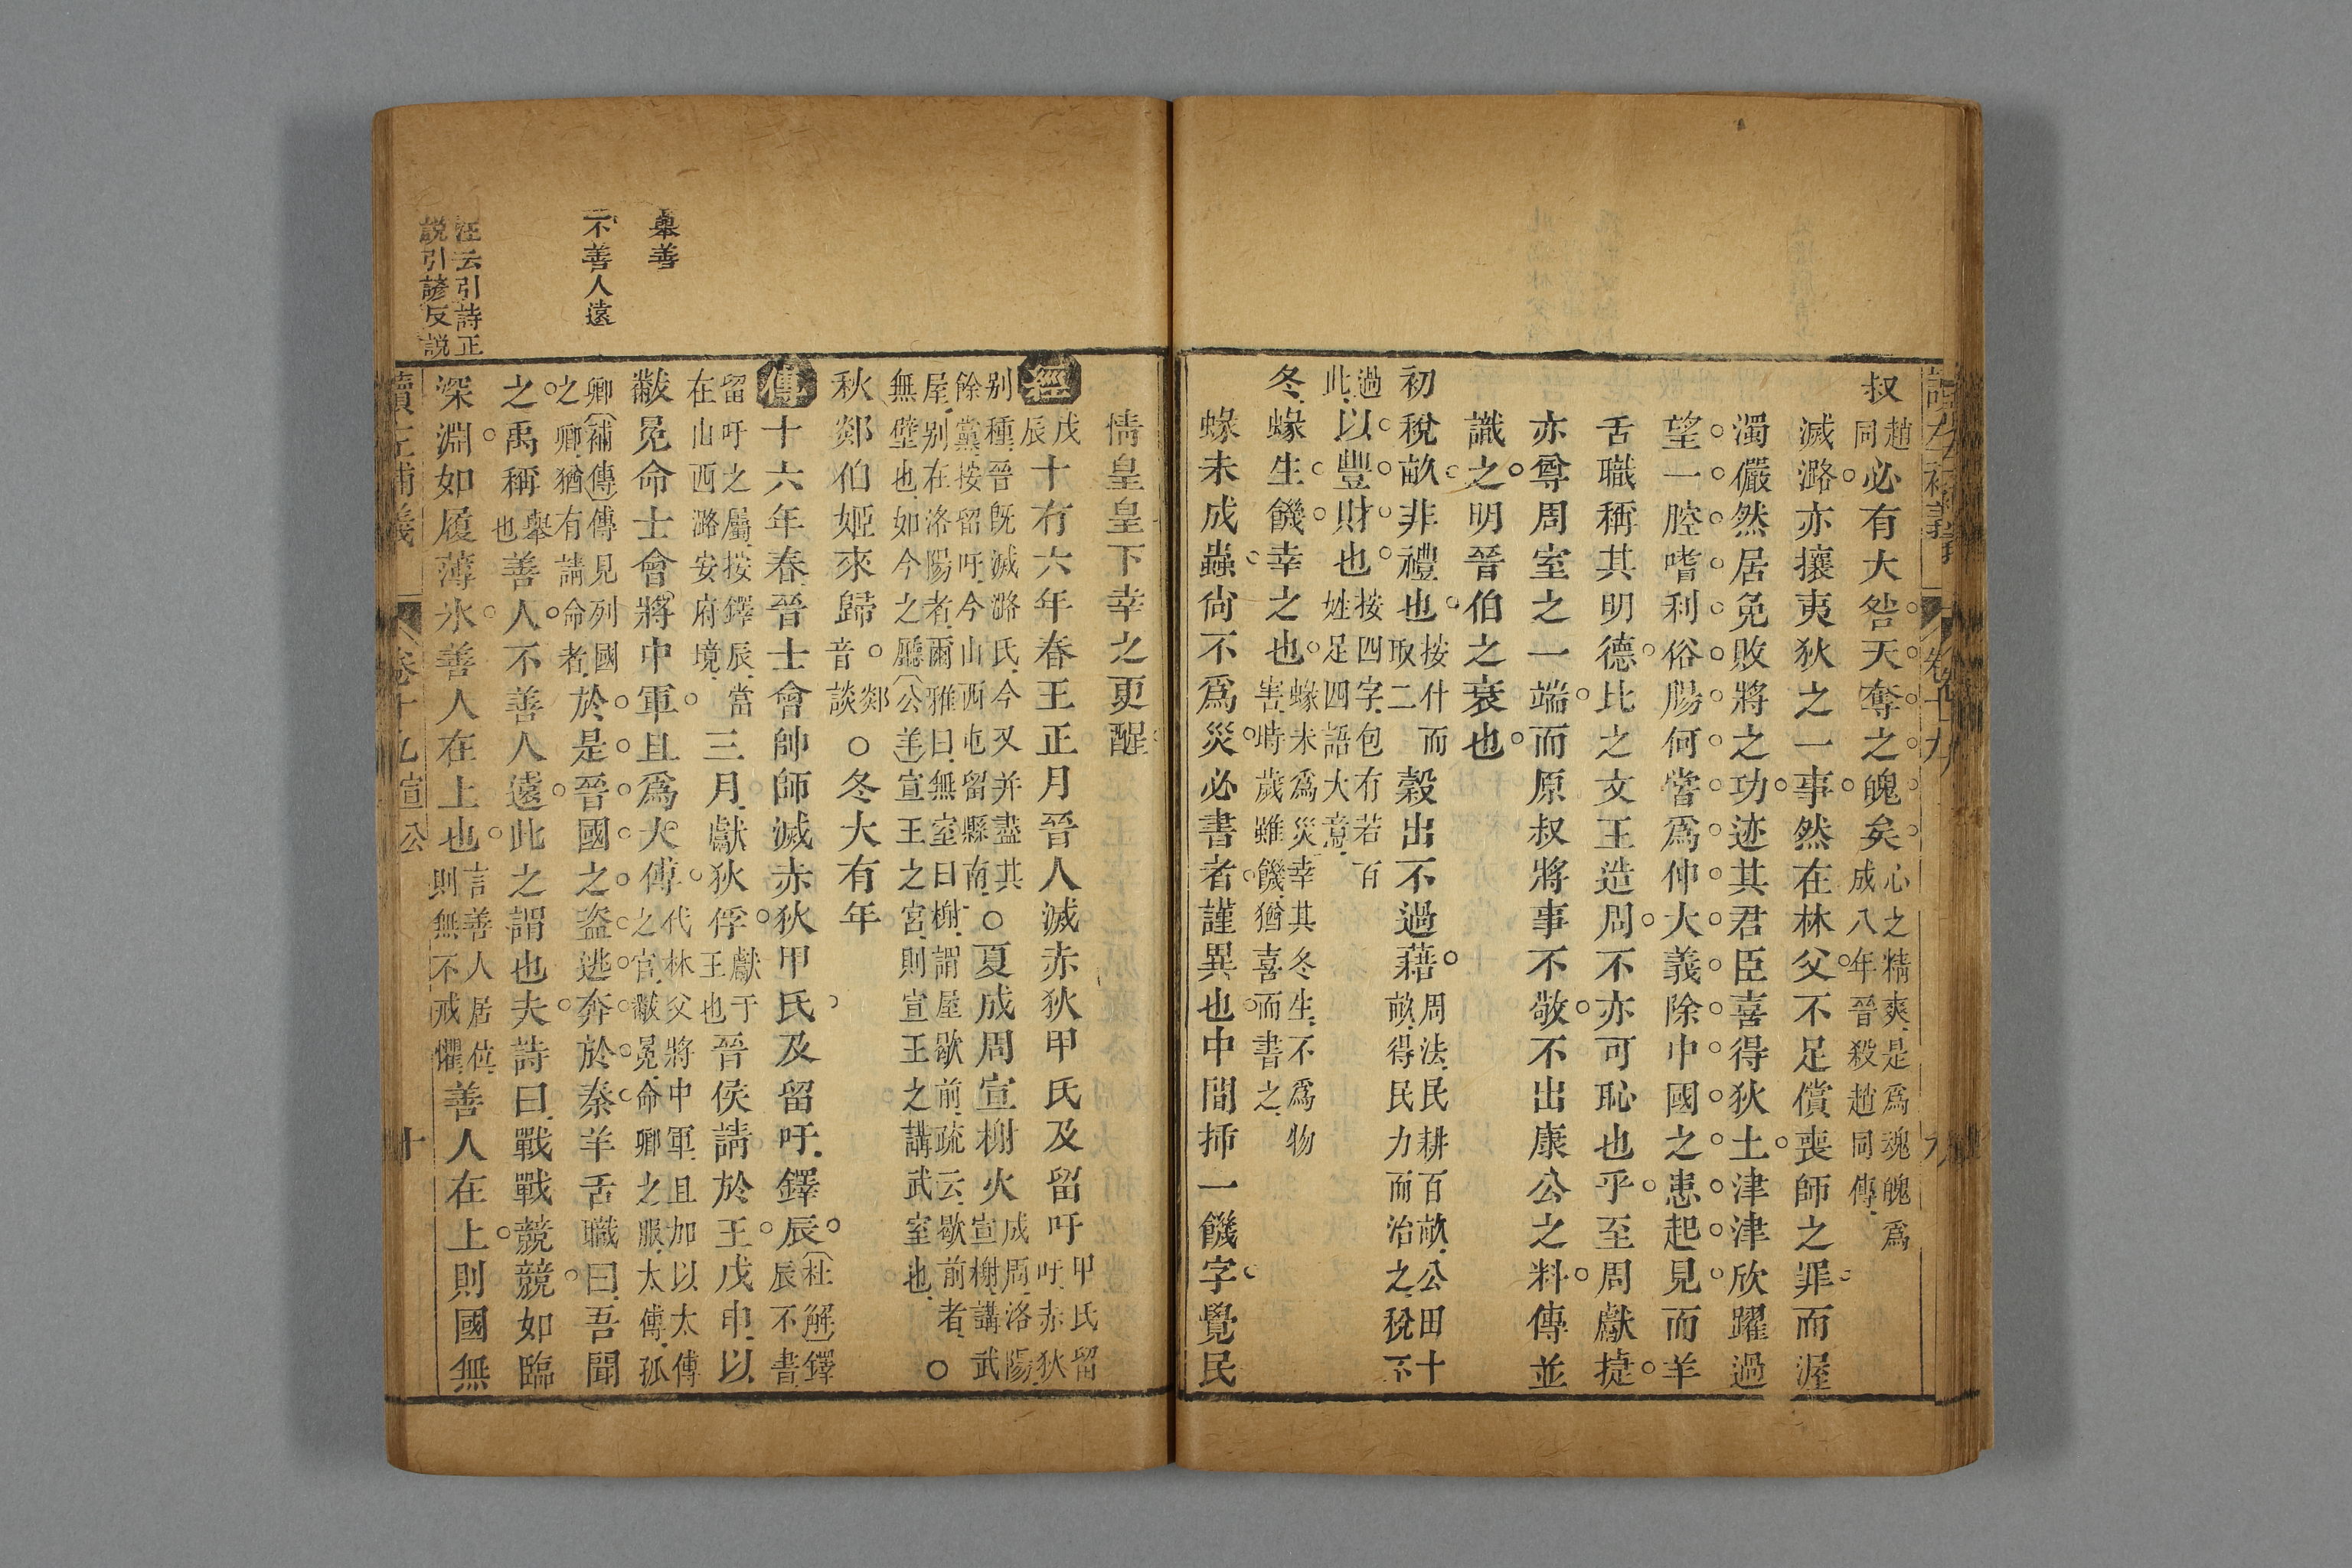 叔趙同必有大咎天奪之魄矣心之精爽是爲魂魄爲成八年晉殺趙同傳
滅潞亦攘夷狄之一事然在林父不足償喪師之罪而渥
濁儼然居免敗將之功迹其君臣喜得狄土津津欣躍過
望一腔嗜利俗腸何嘗爲仲大義除中國之患起見而羊
舌職稱其明德比之文王造周不亦可恥也乎至周獻捷
亦尊周室之一端而原叔將事不敬不出康公之料傳並
識之明晉伯之衰也
初稅畝非禮也按什而取二穀出不過藉周法民耕百畝公田十畝得民力而治之稅不
過此以豐財也按四字包有若百姓足四語大意
冬蝝生饑幸之也蝝未爲災幸其冬生不爲物害時歲雖饑猶喜而書之
蝝未成蟲尙不爲災必書者謹異也中間揷一饑字覺民
情皇皇下幸之更醒
經戊辰十有六年春王正月晉人滅赤狄甲氏及留吁甲氏留吁赤狄
别種晉旣滅潞氏今又并盡其餘黨按留吁今山西屯留縣南○夏成周宣榭火成周洛陽宣榭講武
屋别在洛陽者爾雅曰無室曰榭謂屋歇前疏云歇前者無壁也如今之廳公羊宣王之宮則宣王之講武室也○
秋郯伯姬來歸郯音談○冬大有年
傳十六年春晉士會帥師滅赤狄甲氏及留吁鐸辰杜解鐸辰不書
留吁之屬按鐸辰當在山西潞安府境三月獻狄俘獻于王也晉侯請於王戊申以
黻冕命士會將中軍且爲大傅代林父將中軍且加以太傅之官黻冕命卿之服太傅孤
卿補傳傳見列國之卿猶有請命者於是晉國之盜逃奔於秦羊舌職曰吾聞
之禹稱舉也善人不善人遠此之謂也夫詩曰戰戰兢兢如臨
深淵如履薄氷善人在上也言善人居位則無不戒懼善人在上則國無
舉善
不善人遠
汪云引詩正
説引諺反説
讀左補義
卷十九宣公
十